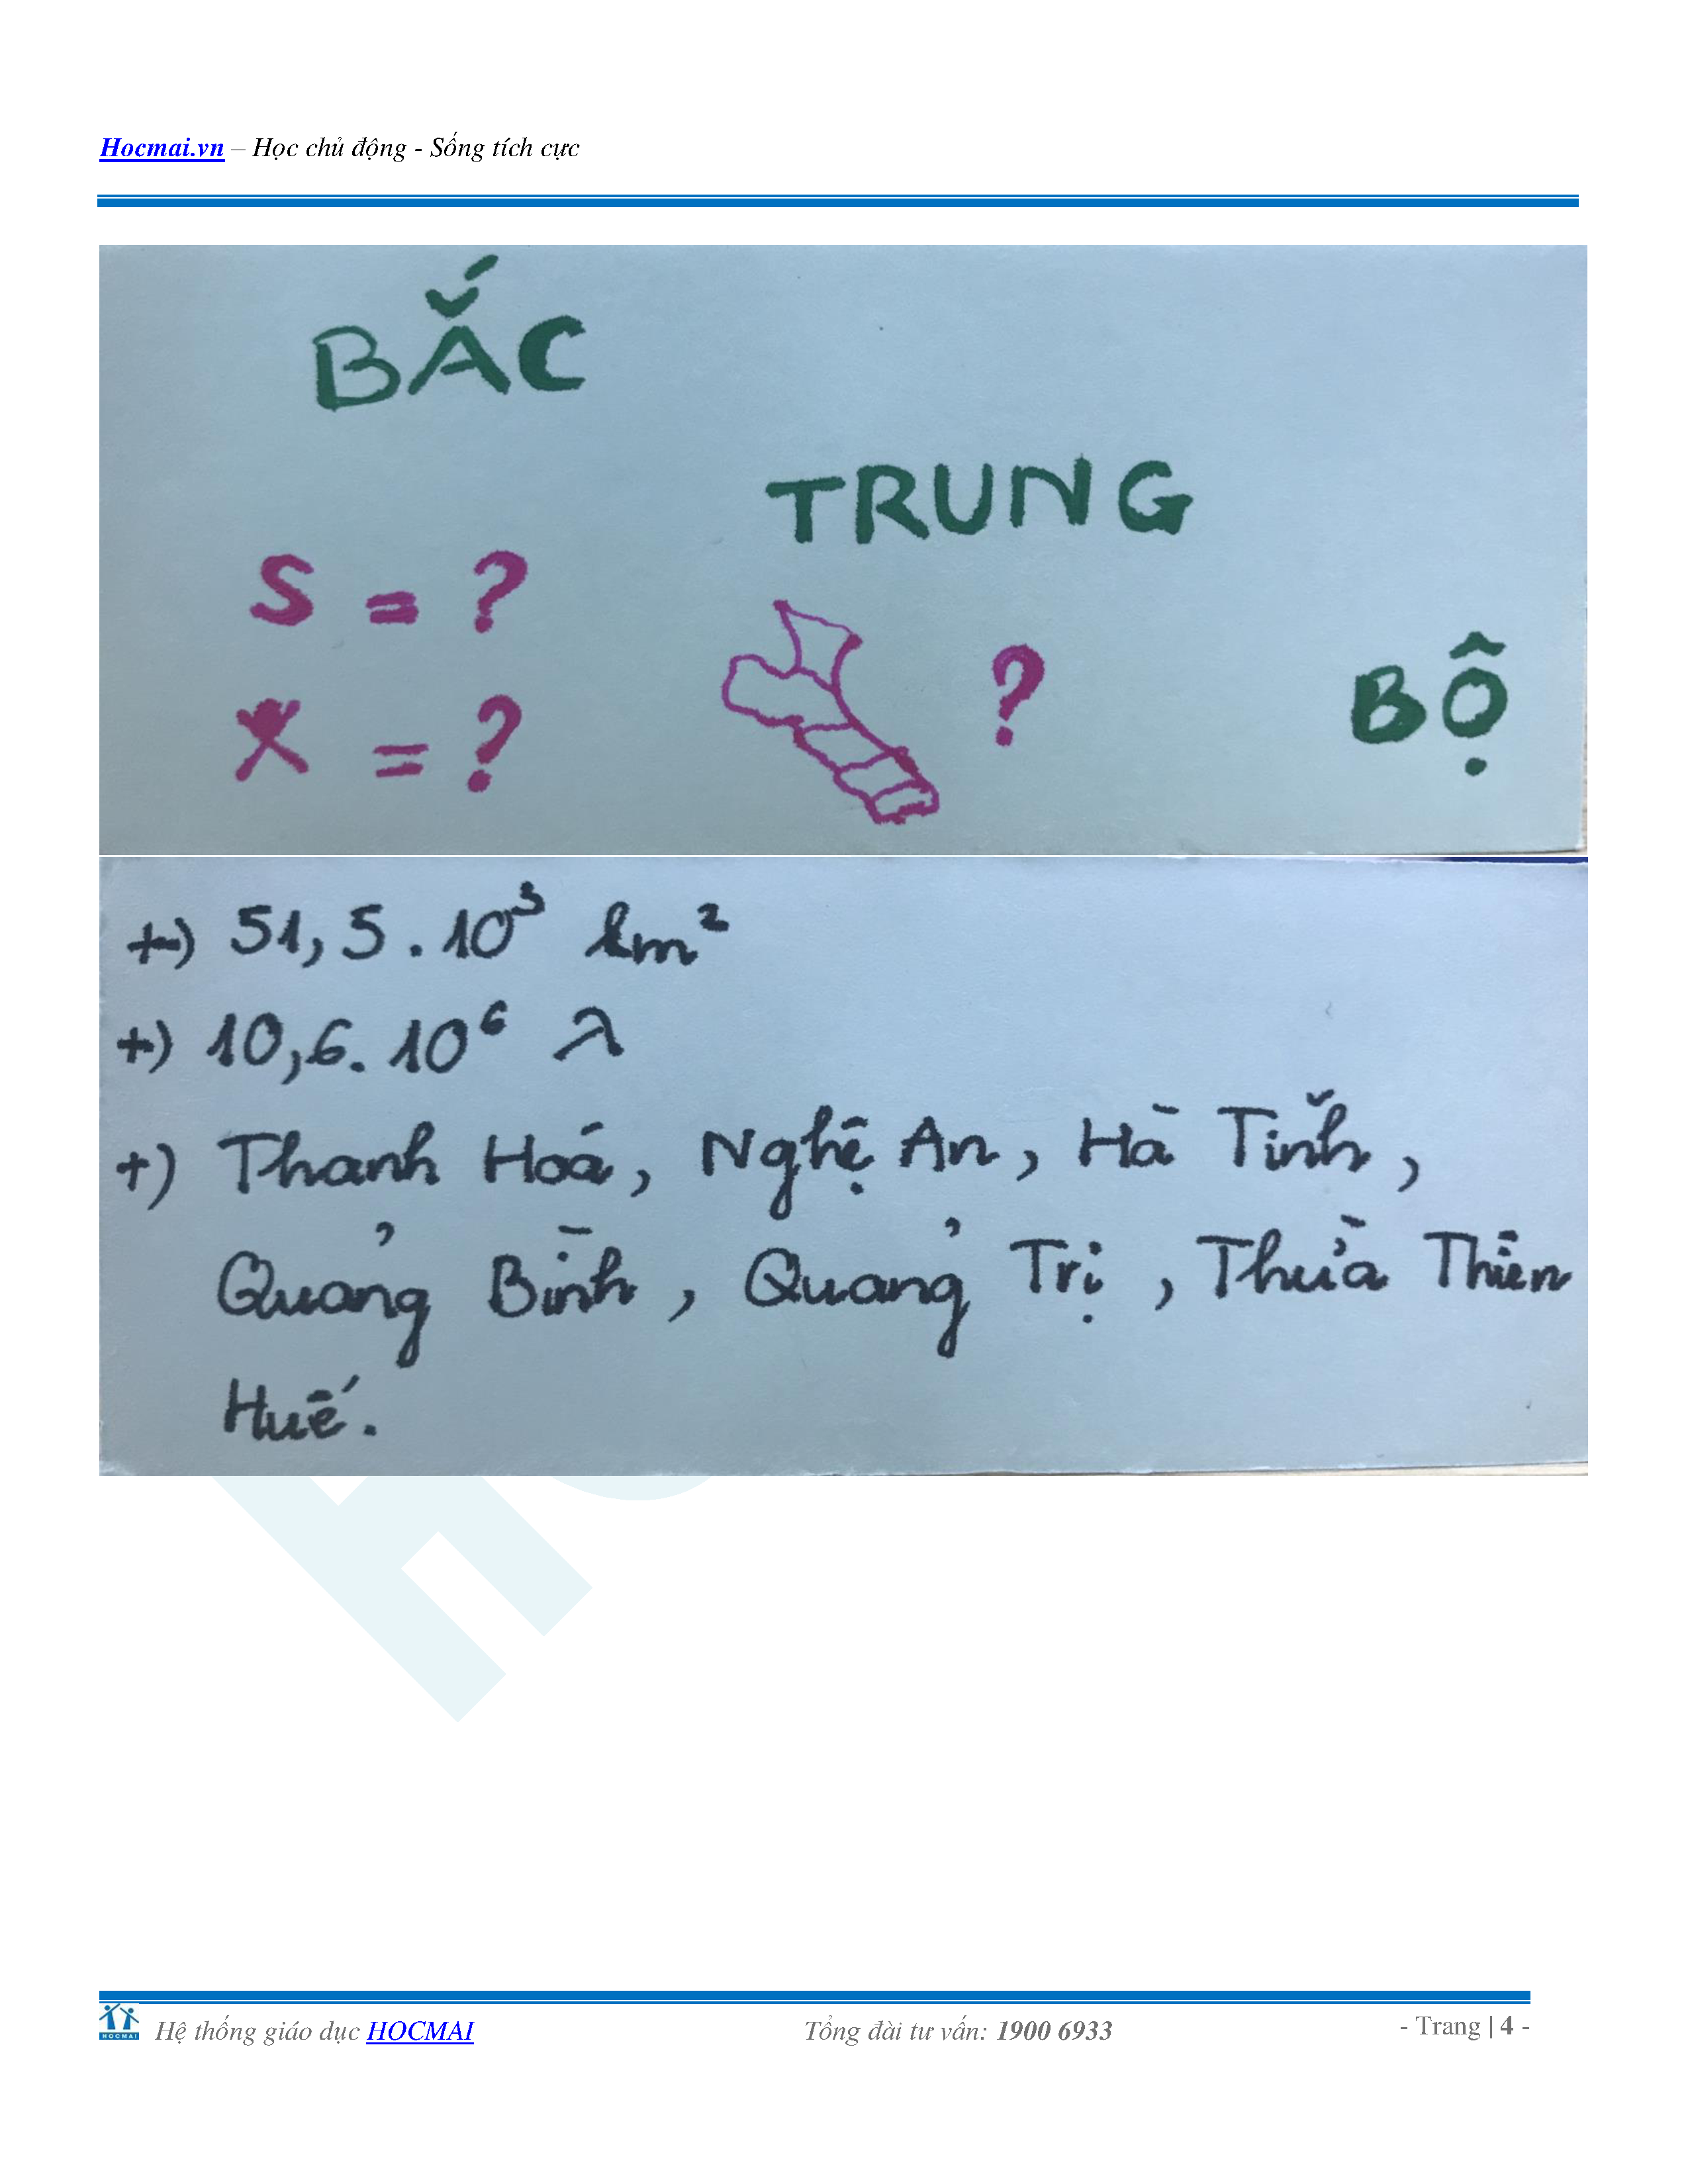 Hocmai.vn – Học chủ động - Sống tích cực
BẮC
TRUNG
S = ?
?
BỘ
= ?
+) 51,5.10³ km²
+) 10,6.10⁶
+) Thanh Hoá, Nghệ An, Hà Tĩnh,
Quảng Bình, Quảng Trị, Thừa Thiên
Huế.
HOCMAI
Hệ thống giáo dục HOCMAI
Tổng đài tư vấn: 1900 6933
- Trang | 4 -